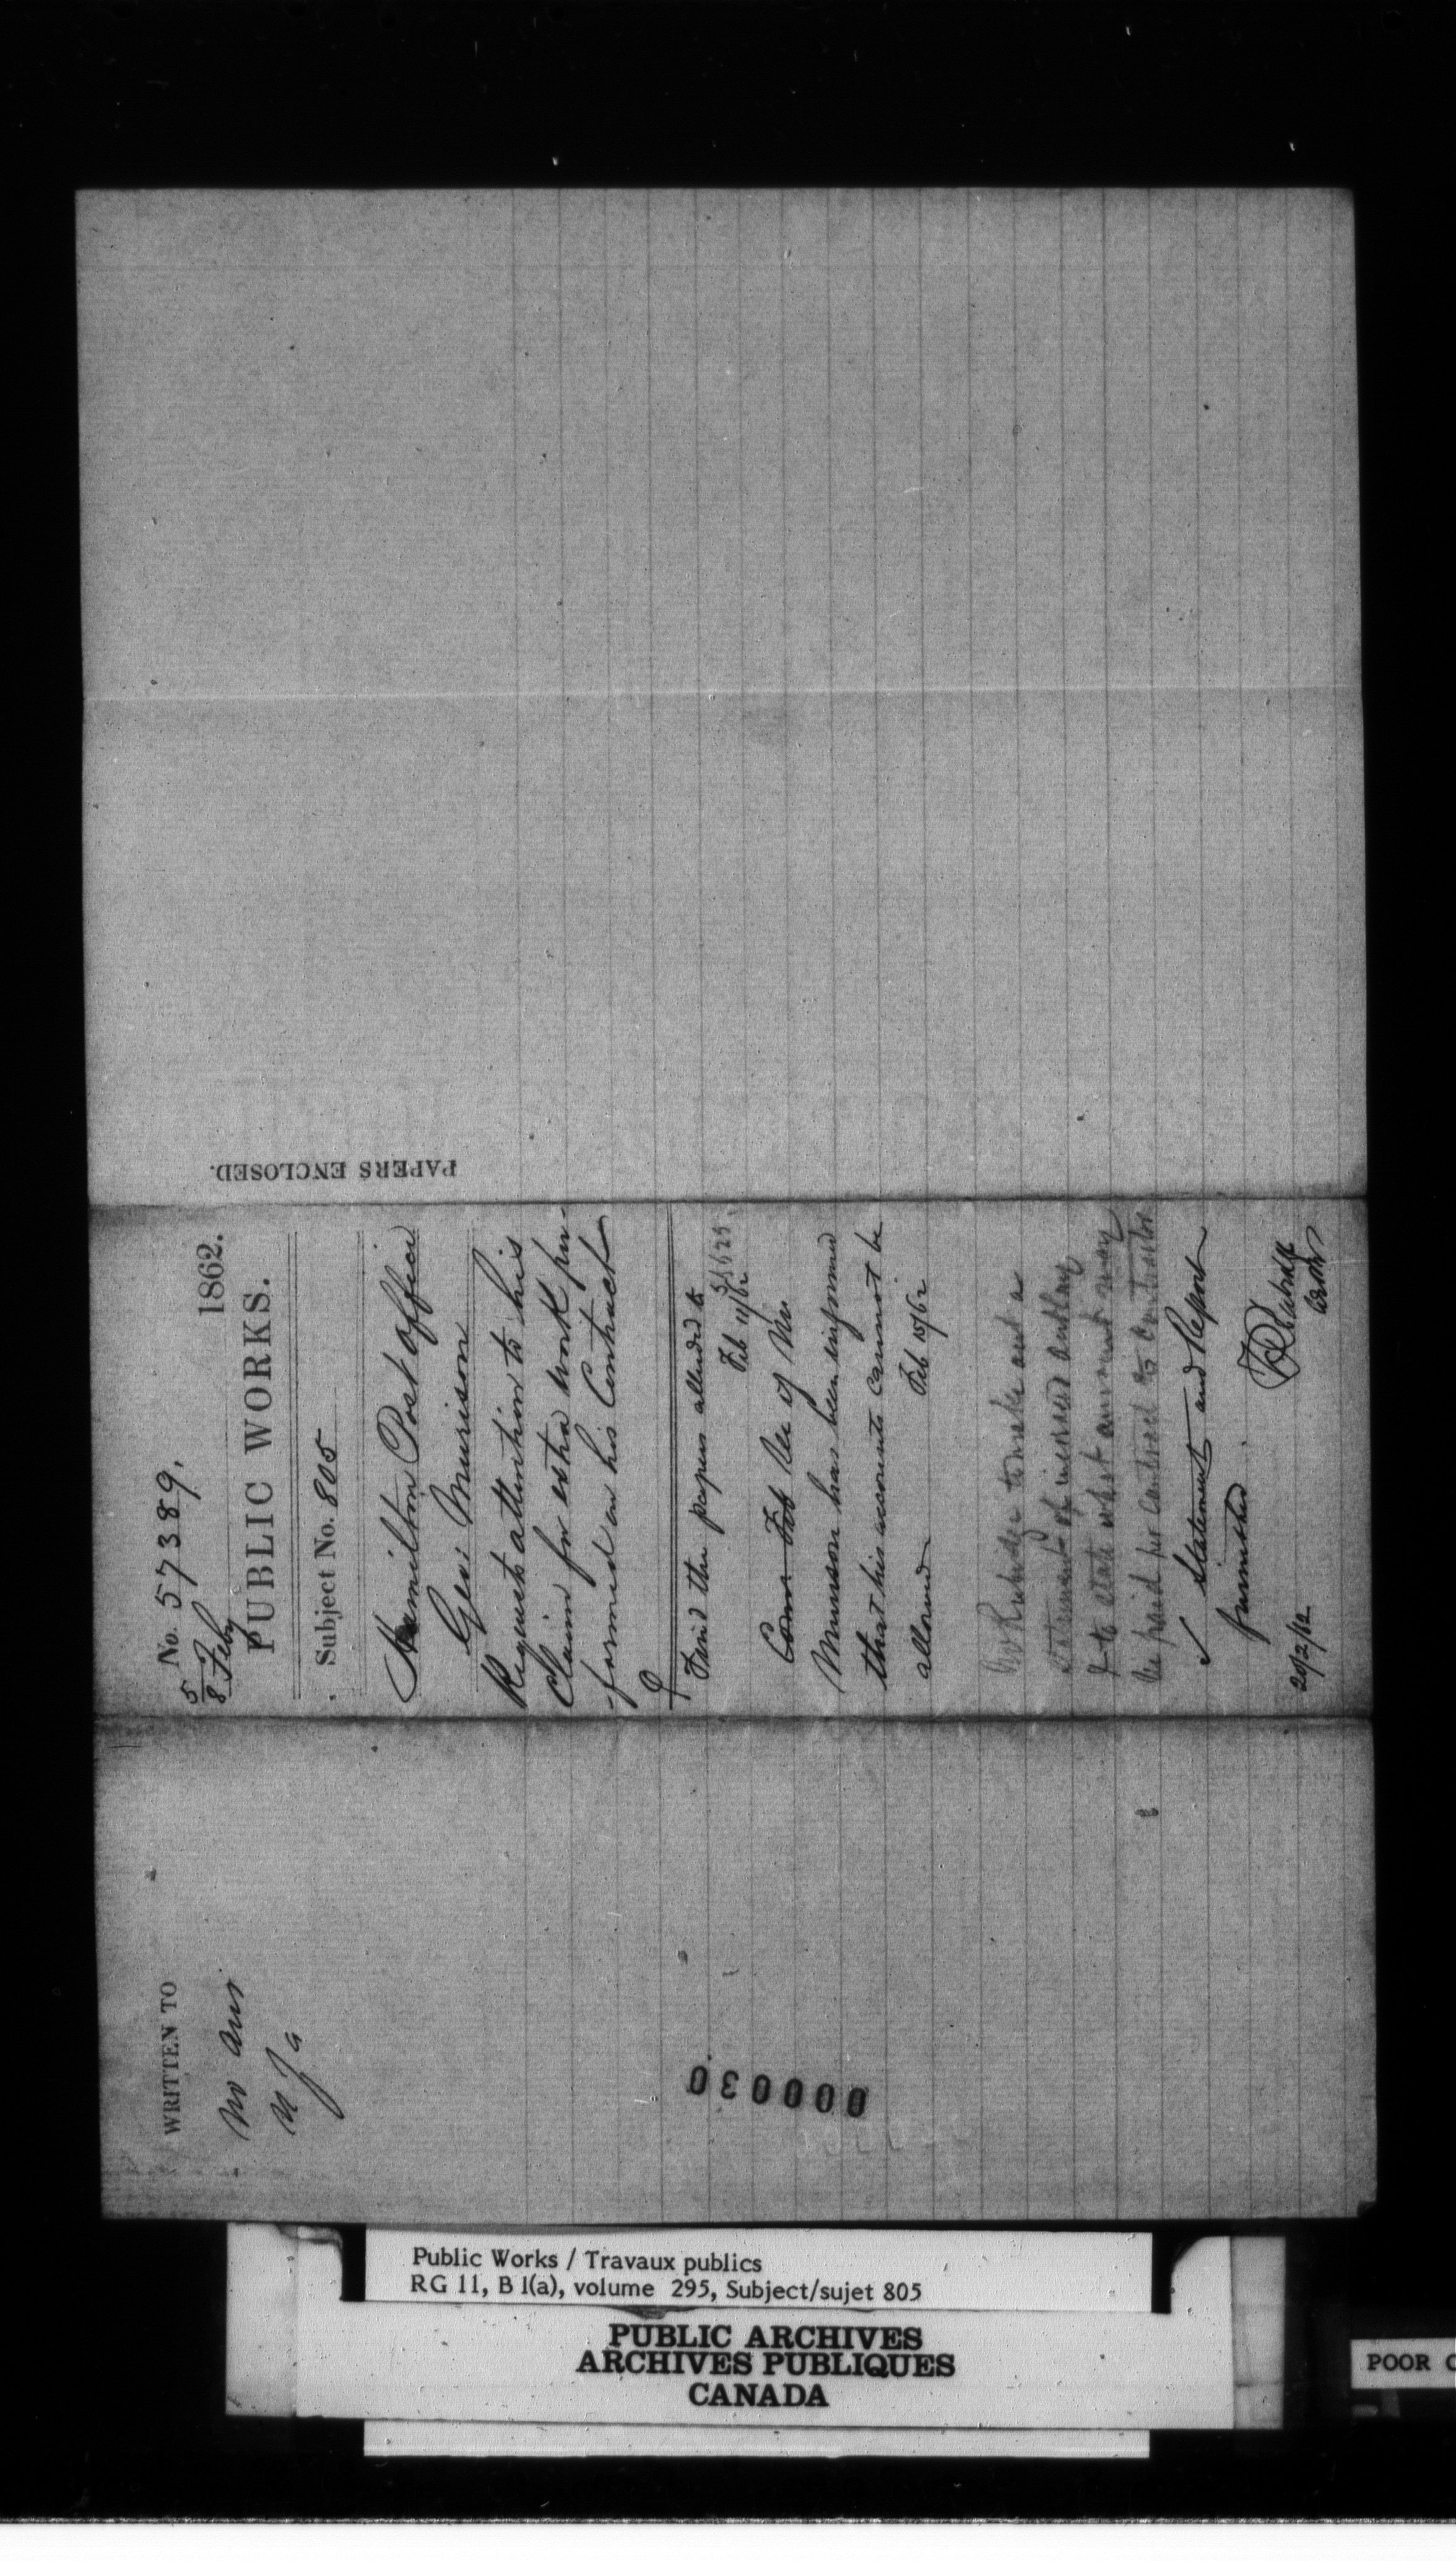 No. 57389.
5/8 Feby 1862.
PUBLIC WORKS.
Subject No. 805
Hamilton Post Office
Geo: Murison
Requests attention to his
Claim for extra work per-
-formed on his Contract
Find the papers alluded to
Feb 11/62
Murison has been informed
that his accounts cannot be
allowed Feb 15/62
Mr Rubidge to make out a
statement of increased outlay
& to state what amount may
be paid per contract to Contractor
✓ Statement and Report
furnished.
20/2/62
PAPERS ENCLOSED.
WRITTEN TO
No ans
000030
Public Works / Travaux publics
RG 11, B 1(a), volume 295, Subject/sujet 805
PUBLIC ARCHIVES
ARCHIVES PUBLIQUES
CANADA
POOR C